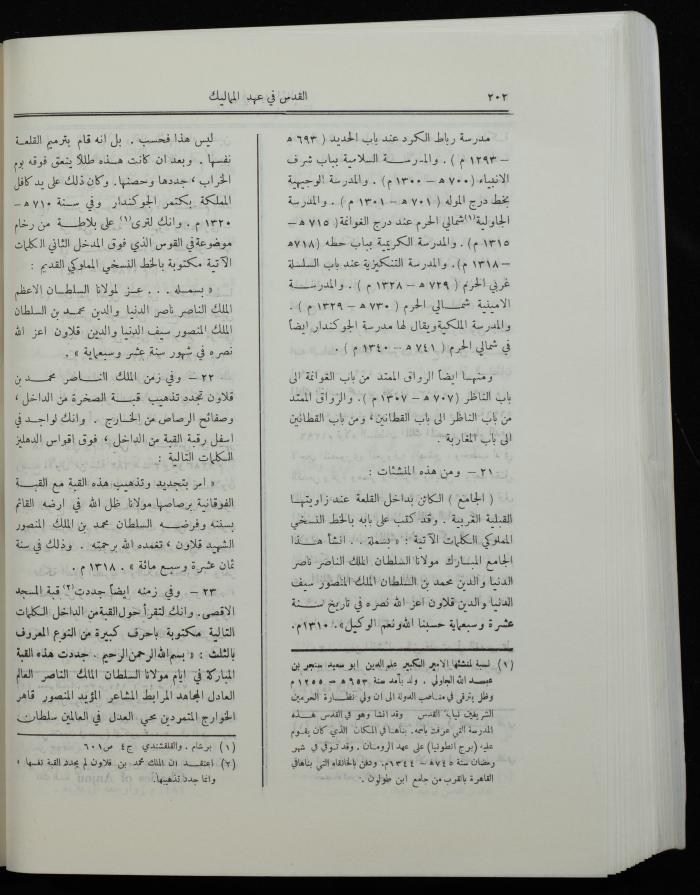 ٢٠٢
القدس في عهد المماليك
مدرسة رباط الكرد عند باب الحديد ( ٦٩٣ ه
– ١٢٩٣ م ) . والمدرســة السلامية بباب شرف
الانبياء ( ٧٠٠ ه – ١٣٠٠ م ) . والمدرسة الوجيهية
بخط درج الموله ( ٧٠١ ه – ١٣٠١ م ) . والمدرسة
الجاولية (١) شمالي الحرم عند درج الغوانمة ( ٧١٥ ه –
١٣١٥ م ) . والمدرسة الكريمية بباب حطه ( ٧١٨ ه
– ١٣١٨ م ) . والمدرسة التنكيزية عند باب السلسلة
غربي الحرم ( ٧٢٩ ه – ١٣٢٨ م ) . والمدرســة
الامينية شمــالي الحرم ( ٧٣٠ ه – ١٣٢٩ م ) .
والمدرسة الملكية ويقال لها مدرسة الجوكندار ايضاً
في شمالي الحرم ( ٧٤١ ه – ١٣٤٠ م ) .
ومنهــا ايضاً الرواق الممتد من باب الغوانمة الى
باب الناظر ( ٧٠٧ ه – ١٣٠٧ م ) . والرواق الممتد
من باب الناظر الى باب القطانين ، ومن باب القطانين
الى باب المغاربة .
٢١ – ومن هذه المنشئات :
( الجامع ) الكائن بداخل القلعة عند زاويتهــا
القبلية الغربية . وقد كتب على بابه بالخط النسخي
المملوكي الكلمات الآتية : « بسملة . . انشأ هــذا
الجامع المبارك مولانا السلطان الملك الناصر ناصر
الدنيا والدين محمد بن السلطان الملك المنصور سيف
الدنيا والدين قلاون اعز الله نصره في تاريخ سنــة
عشرة وسبعماية حسبنا الله ونعم الوكيل » . ١٣١٠م.
(١) نسبة لمنشئها الامير الكبير علم الدين ابو سعيد سنجر بن
عبــد الله الجاولي . ولد بآمد سنة ٦٥٣ ه – ١٢٥٥ م
وظل يترقى في مناصب الدولة الى ان ولي نظــارة الحرمين
الشريفين نيابة القدس وقد انشأ وهو في القدس هــذه
المدرسة التي عرفت باسمه. بناهــا في المكان الذي كان يقــوم
عليه (برج انطونيا) على عهد الرومــان . وقد توفي في شهر
رمضان سنة ٧٤٥ ه – ١٣٤٤ م. ودفن بالخانقاه التي بناها في
القاهرة بالقرب من جامع ابن طولون .
ليس هذا فحسب . بل انه قام بترميم القلعـة
نفسها . وبعد ان كانت هــذه طللاً ينعق فوقه بوم
الخراب ، جددها وحصنها . وكان ذلك على يد كافل
المملكة بكتمر الجوكندار وفي سنــة ٧١٠ ه –
١٣٢٠ م . وانك لترى (١) على بلاطــة من رخام
موضوعة في القوس الذي فوق المدخل الثاني الكلمات
الآتية مكتوبة بالخط النسخي المملوكي القديم :
« بسمله . . . عــز لمولانا السلطــان الاعظم
الملك الناصر ناصر الدنيا والدين محمــد بن السلطان
الملك المنصور سيف الدنيا والدين قلاون اعز الله
نصره في شهور سنة عشر وسبعماية » .
٢٢ – وفي زمن الملك الناصر محمــد بن
قلاون تجدد تذهيب قبــة الصخرة من الداخل ،
وصفائح الرصاص من الخــارج . وانك لواجــد في
اسفل رقبة القبة من الداخل ، فوق اقواس الدهليز
الكلمات التالية :
« امر بتجديد وتذهيب هذه القبة مع القبــة
الفوقانية برصاصها مولانا ظل الله في ارضه القائم
بسنته وفرضــه السلطان محمد بن الملك المنصور
الشهيد قلاون ، تغمده الله برحمته . وذلك في سنة
ثمان عشرة وسبع مائة » . ١٣١٨ م .
٢٣ – وفي زمنه ايضاً جددت (٢) قبة المسجد
الاقصى . وانك لتقرأ حول القبة من الداخل الكلمات
التالية مكتوبة باحرف كبيرة من النوع المعروف
بالثلث : « بسم الله الرحمن الرحيم . جددت هذه القبة
المباركة في ايام مولانا السلطان الملك الناصر العالم
العادل المجاهد المرابط المشاغر المؤيد المنصور قاهر
الخوارج المتمردين محيي العدل في العالمين سلطان
(١) برشام . والقلقشندي ج٤ ص٦٠١
(٢) اعتقــد ان الملك محمد بن قلاون لم يجدد القبة نفسها ،
وانما جدد تذهيبها.